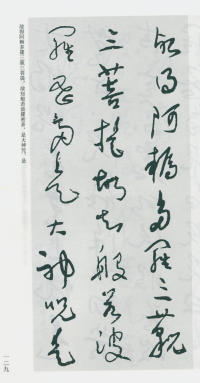 故得阿耨多羅三藐
三菩提故知般若波
羅蜜多是大神呪是
故得阿耨多羅三藐三菩提。故知般若波羅蜜多，是大神咒，是
一二九